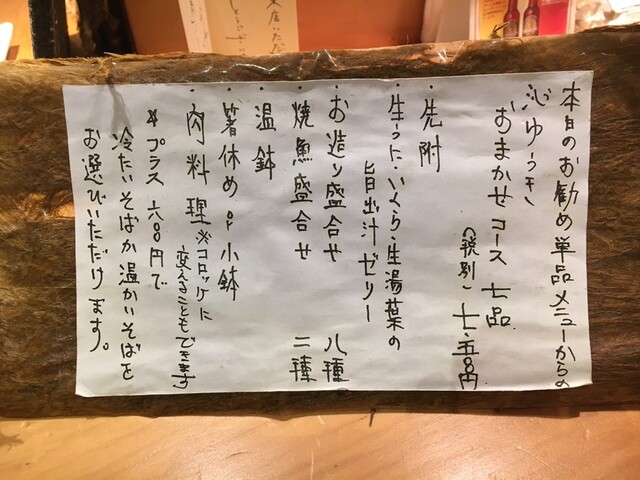 本日のお勧め単品メニューからの
心ゆうき
おまかせコース 七品
(税別) 七・五〇〇円
・先附
・生うに・いくら・生湯葉の
旨出汁ゼリー
・お造り盛合せ 八種
・焼魚盛合せ 二種
・温鉢
・箸休め or 小鉢
・肉料理 ※コロッケに
変えることもできます
* プラス 六〇〇円で
冷たいそばか温かいそばを
お選びいただけます。